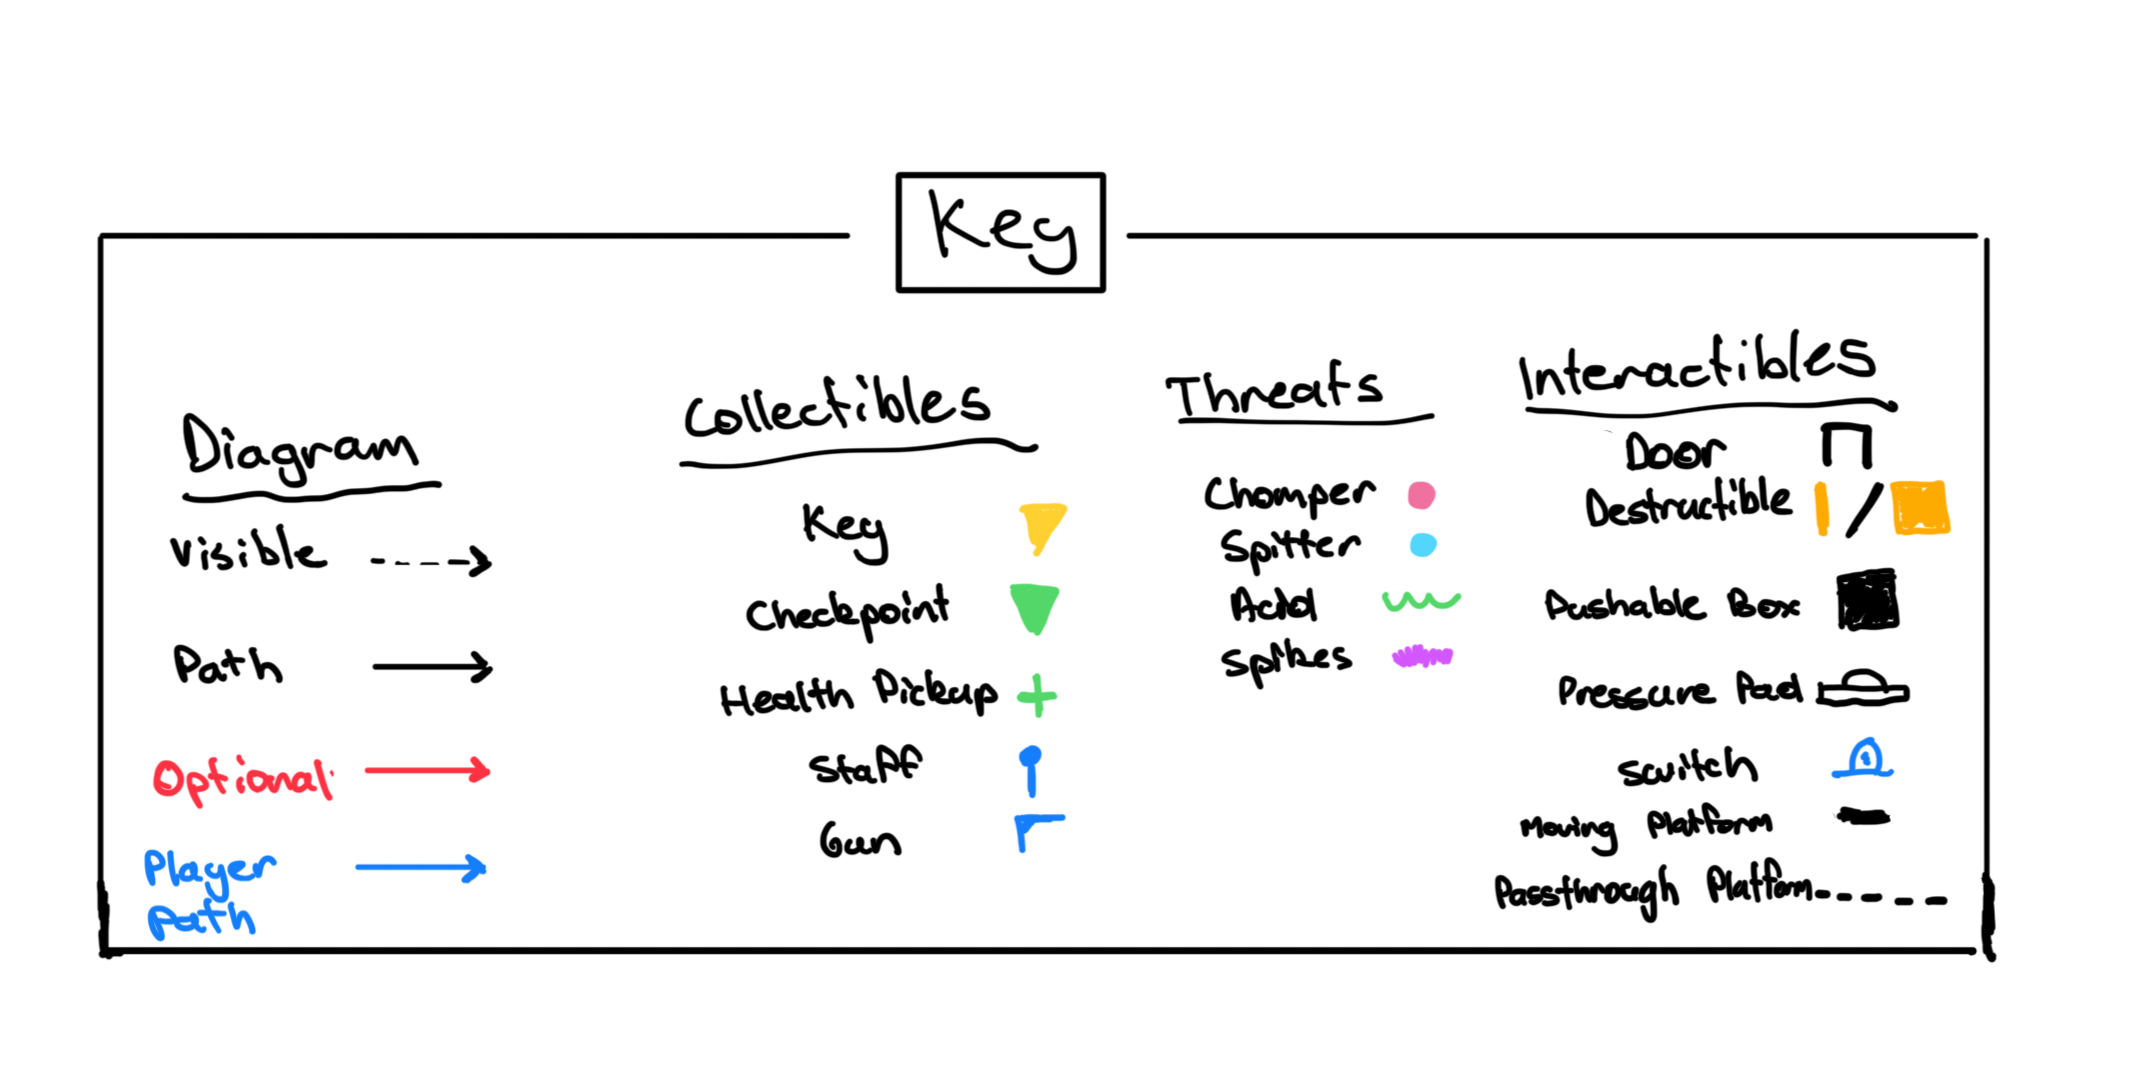 Key
Diagram
Visible
Path
Optional
Player
Path
Collectibles
Key
Checkpoint
Health Pickup
Staff
Gun
Threats
Chomper
Spitter
Acid
Spikes
Interactibles
Door
Destructible
Pushable Box
Pressure Pad
Switch
Moving Platform
Passthrough Platform